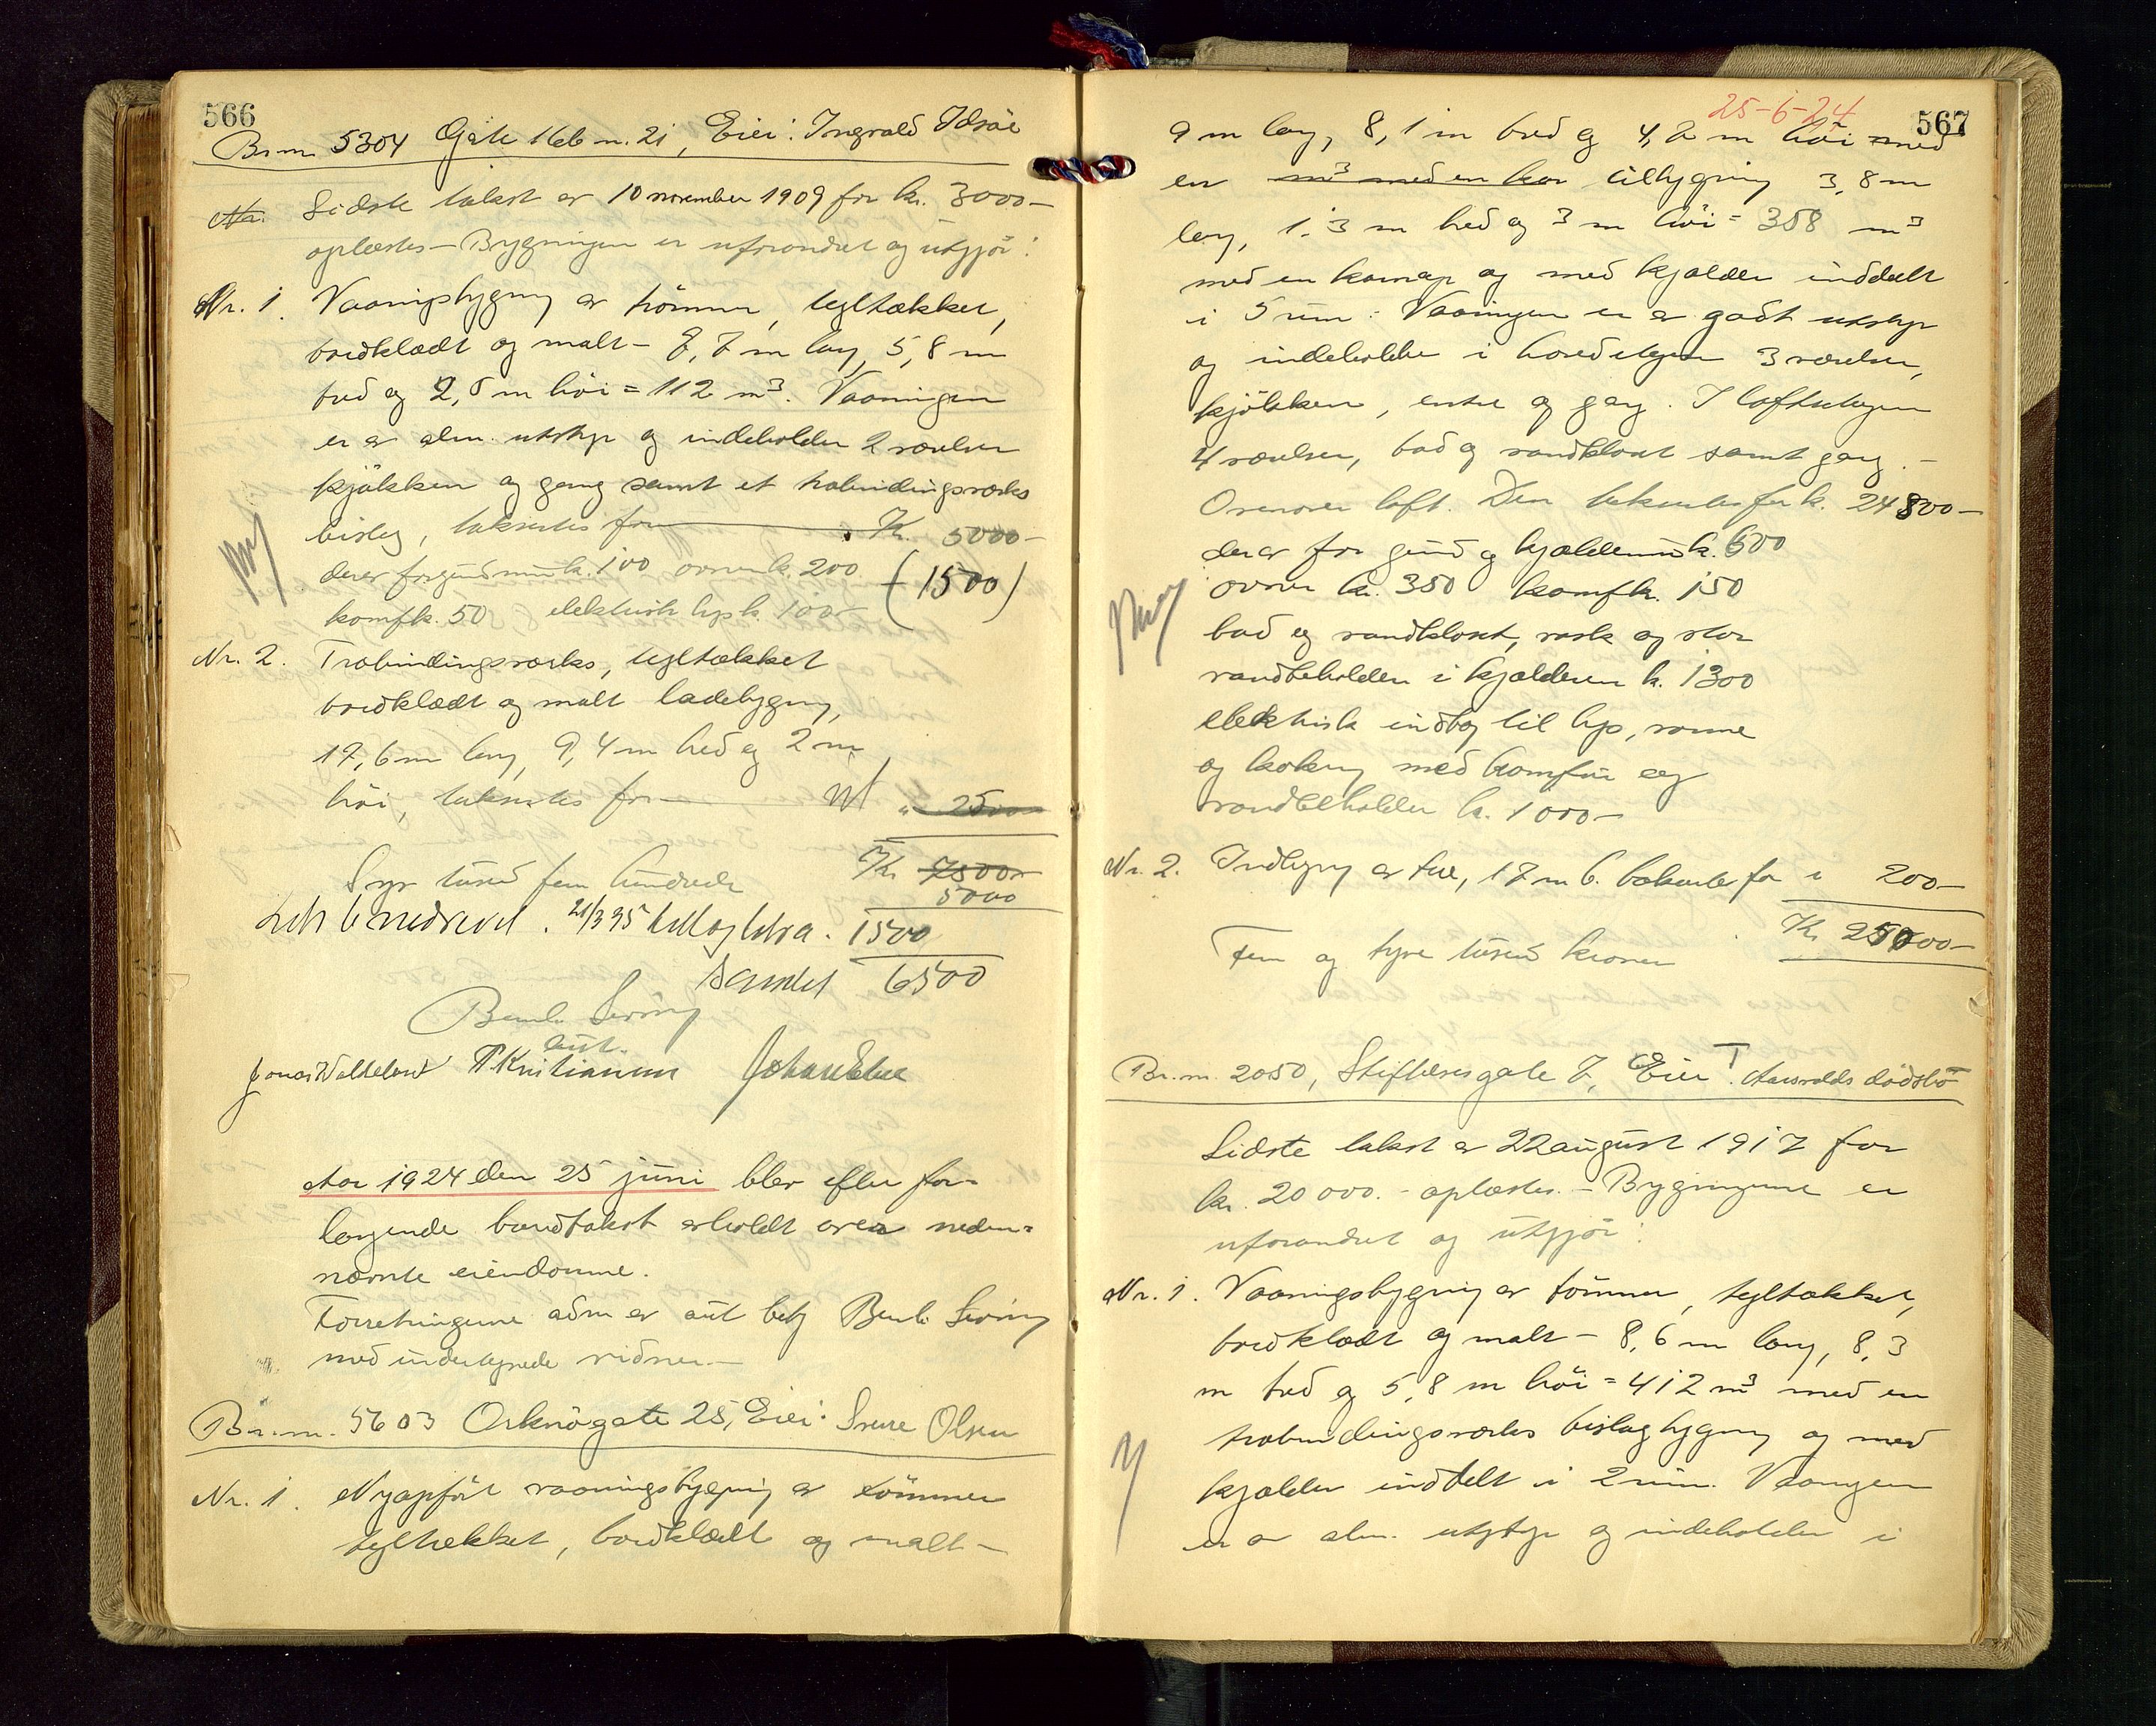 566
Br.nr. 5304 Gate 166 nr. 21, Eier: Ingvald Idsöe
Nr. Sidste takst er 10 november 1909 for kr. 3000-
oplæstes - Bygningen er uforandret og utgjör:
Nr. 1. Vaaningsbygning av tömmer, tegltækket,
bordklædt og malt - 7,7 m lang, 5,8 m
bred og 2,5 m höi = 112 m³. Vaaningen
er av alm. utstyr og indeholder 2 værelser
kjökken og gang samt et trabindingsverks
bislag, takseres for Kr. 5000-
derav for grundmur k. 100 ovner k. 200 (1500)
komf k. 50 elektrisk lys k. 100-
Nr. 2. Trabindingsverks, tegltækket
bordklædt og malt ladebygning,
17,6 m lang, 9,4 m bred og 2 m
höi, takseres for " 2500
Syv tusend fem hundrede Kr. 7500-
5000
21/3 35 1500
Samlet 6500
Bernh. Seving
aut.
T Kristiansen
Aar 1924 den 25 juni blev efter for-
langende brandtakst avholdt over neden-
nævnte eiendomme.
Forretningene adm. av aut. bety Bernh. Seving
med undertegnede vidner -
Br.nr. 5603 Orknögate 25, Eier: Sverre Olsen
Nr. 1. Nyopfört vaaningsbygning av tömmer
tegltækket, bordklædt og malt -
25-6-24
567
9 m lang, 8,1 m bred og 4,2 m höi med
en m³ med en kar tilbygning 3,8 m
lang, 1.3 m bred og 3 m höi = 358 m³
med en karnap og med kjælder inddelt
i 5 rum. Vaaningen er av godt utstyr
og indeholder i hovedetagen 3 værelser,
kjökken, entre og gang. I loftsetagen
4 værelser, bad og vandkloset samt gang. -
Ovenover loft. Den takseres for k. 24800-
derav for grund og kjældermur k. 600
ovner kr. 350 komf k. 150
bad og vandkloset, vask og stor
vandbeholder i kjælderen k. 1300
elektrisk indlæg til lys, varme
og kokning med komfur og
vandbeholder k. 1000-
Nr. 2. Indhegning av træ, 17 m l. takseres for " 200-
Fem og tyve tusend kroner Kr. 25000-
Br.nr. 2050, Stiftelsesgate 7, Eier T. Aarvolds dödsbo
Sidste takst er 22 august 1917 for
kr. 20000.- oplæstes. - Bygningene er
uforandret og utgjör:
Nr. 1. Vaaningsbygning av tömmer, tegltækket,
bordklædt og malt - 8,6 m lang, 8,3
m bred og 5,8 m höi = 412 m³ med en
trabindingsverks bislagbygning og med
kjælder inddelt i 2 rum. Vaaningen
er av alm. utstyr og indeholder i